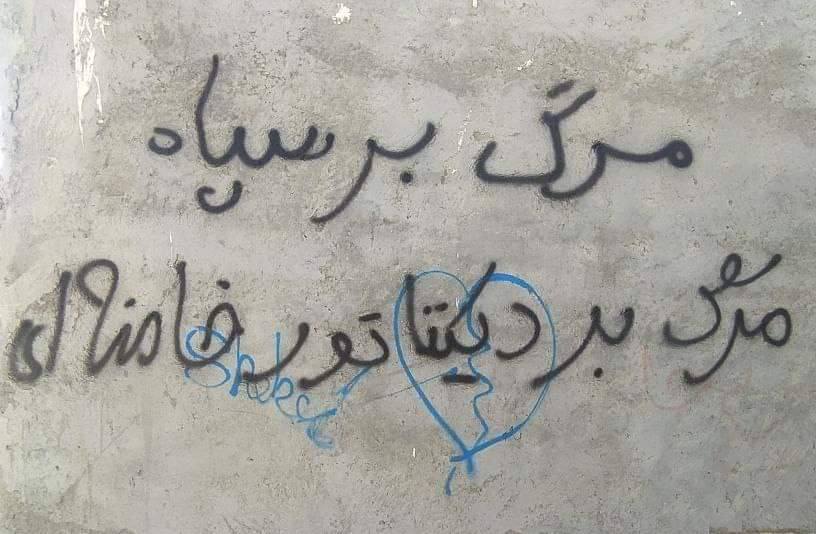 مرگ بر سپاه
مرگ بر دیکتاتور خامنه ای